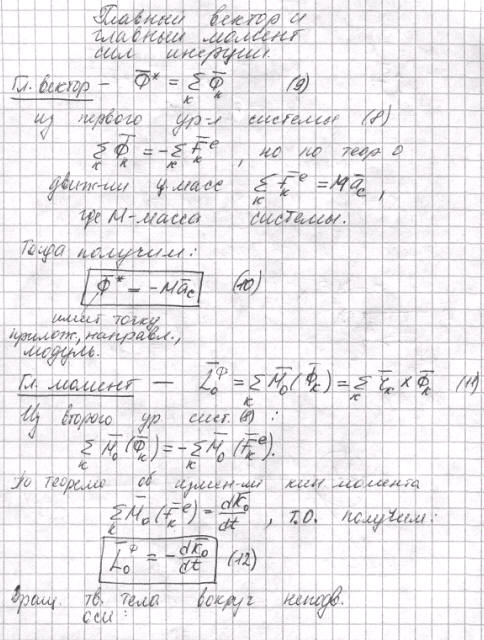 Главный вектор и
главный момент
сил инерции.
Гл. вектор – Φ̅* = Σ_k Φ̅_k (9)
из первого ур-я системы (8)
Σ_k Φ̅_k = -Σ_k F̅_k^e, но по теор о
движ-ии ц. масс Σ_k F̅_k^e = Ma̅_c,
где M-масса системы.
Тогда получим:
Φ̅* = -Ma̅_c (10)
имеет точку
прилож., направл.,
модуль.
Гл. момент — L̅_0^Φ = Σ_k M̅_0(Φ̅_k) = Σ_k r̅_k × Φ̅_k (11)
Из второго ур сист. (8) :
Σ_k M̅_0(Φ̅_k) = -Σ_k M̅_0(F̅_k^e).
По теореме об измен-ии кин момента
Σ_k M̅_0(F̅_k^e) = dK̅_0/dt, т.о. получим:
L̅_0^Φ = -dK̅_0/dt (12)
Вращ. тв. тела вокруг неподв.
оси: